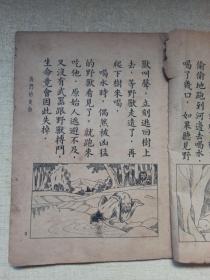 偷偷地跑到河邊去喝水，
喝了幾口，如果聽見野
獸叫聲，立刻逃回樹上
去，等野獸走遠了，再
爬下樹來喝。
喝水時，偶然被凶猛
的野獸看見了，就跑來
吃他，原始人逃避不及，
又沒有武器跟野獸搏鬥，
生命竟會因此失掉。